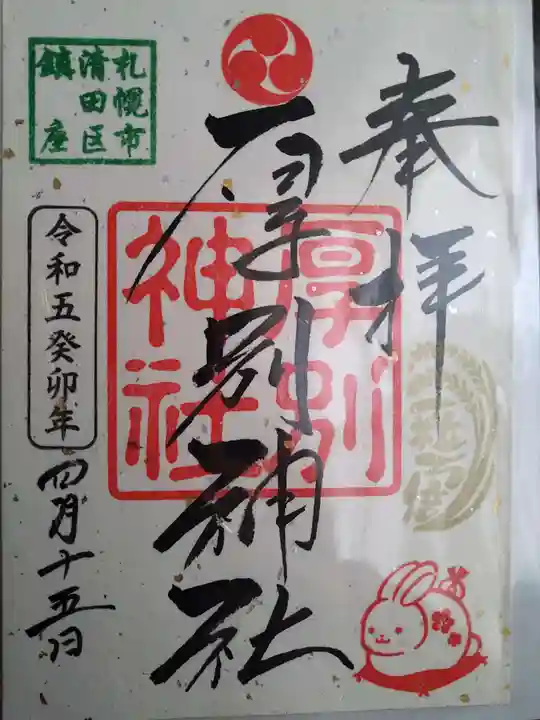 奉拝
厚別神社
厚別
神社
札幌市
清田区
鎮座
令和五癸卯年
四月十五日